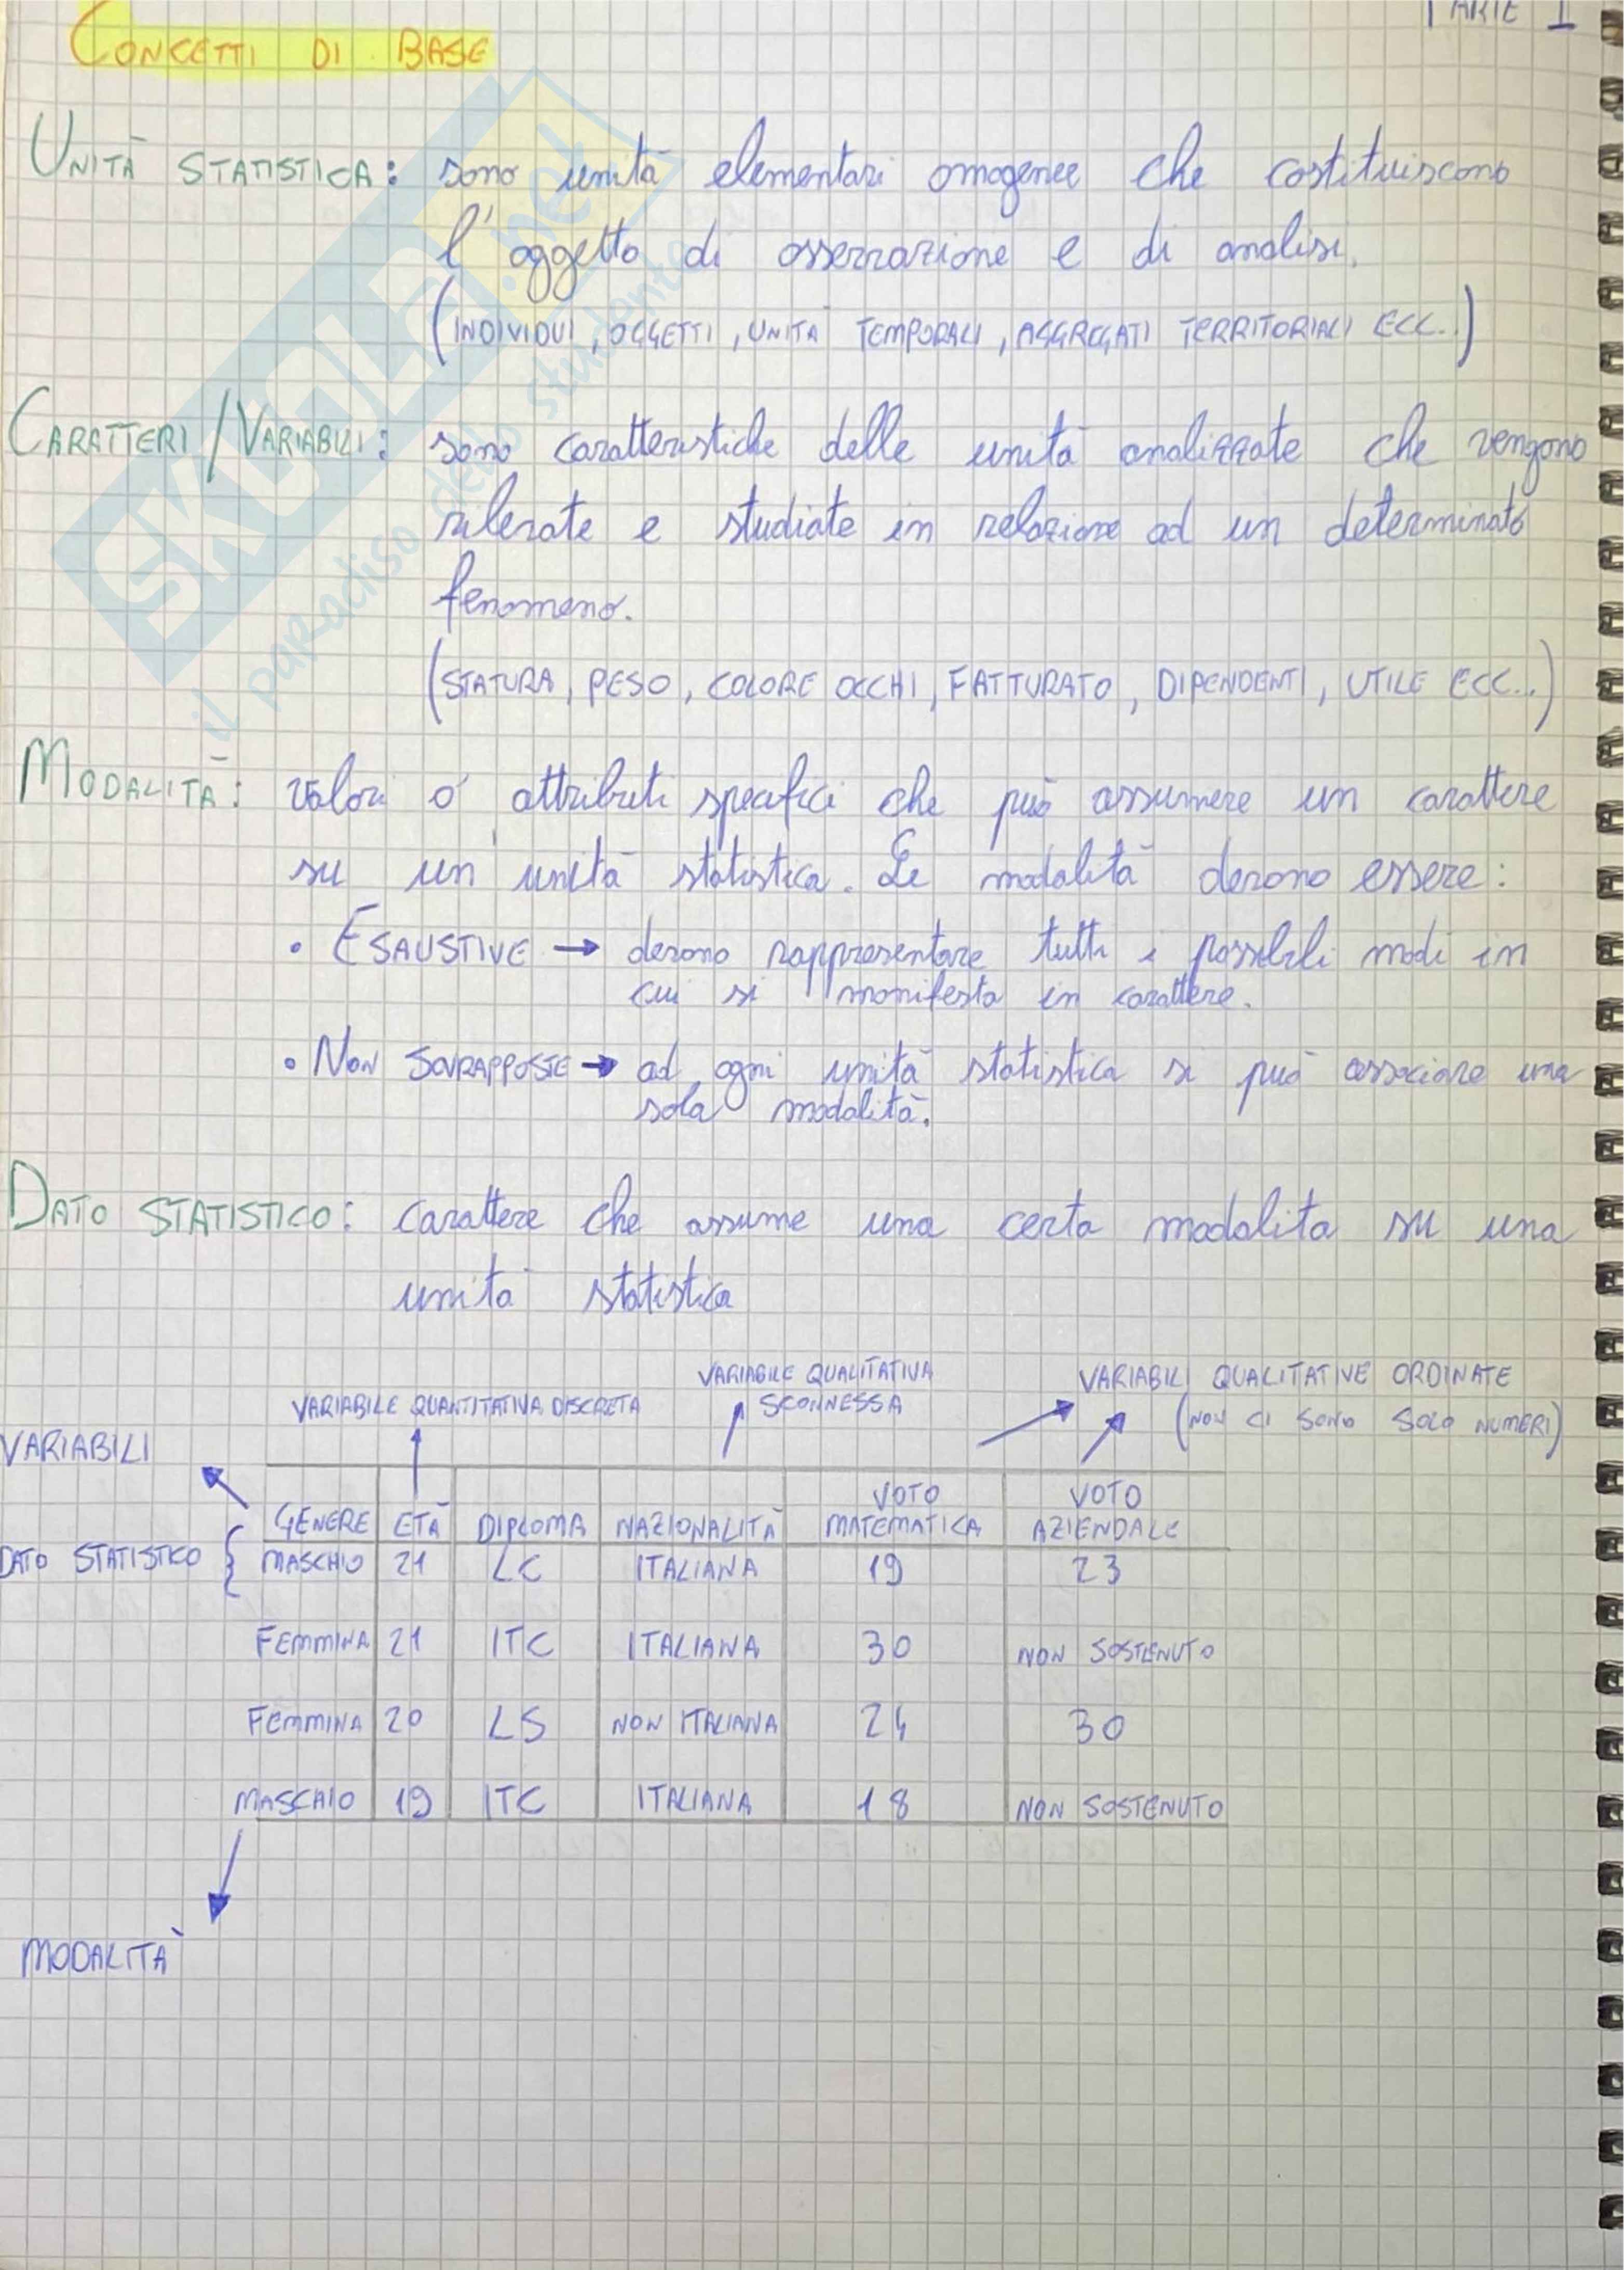 PARTE I
CONCETTI DI BASE
UNITÀ STATISTICA: sono unità elementari omogenee che costituiscono
l'oggetto di osservazione e di analisi.
(INDIVIDUI, OGGETTI, UNITÀ TEMPORALI, AGGREGATI TERRITORIALI ECC..)
CARATTERI/VARIABILI: sono caratteristiche delle unità analizzate che vengono
rilevate e studiate in relazione ad un determinato
fenomeno.
(STATURA, PESO, COLORE OCCHI, FATTURATO, DIPENDENTI, UTILE ECC...)
MODALITÀ: valori o attributi specifici che può assumere un carattere
su un'unità statistica. Le modalità devono essere:
• ESAUSTIVE → devono rappresentare tutti i possibili modi in
cui si manifesta in carattere.
• NON SOVRAPPOSTE → ad ogni unità statistica si può associare una
sola modalità.
DATO STATISTICO: carattere che assume una certa modalita su una
unità statistica
VARIABILE QUANTITATIVA DISCRETA
VARIABILE QUALITATIVA
SCONNESSA
VARIABILI QUALITATIVE ORDINATE
(NON CI SONO SOLO NUMERI)
VARIABILI
GENERE ETÀ DIPLOMA NAZIONALITÀ VOTO MATEMATICA VOTO AZIENDALE
DATO STATISTICO { MASCHIO 21 LC ITALIANA 19 23
FEMMINA 21 ITC ITALIANA 30 NON SOSTENUTO
FEMMINA 20 LS NON ITALIANA 24 30
MASCHIO 19 ITC ITALIANA 18 NON SOSTENUTO
MODALITÀ
SKUOLA.net
il paradiso dello studente